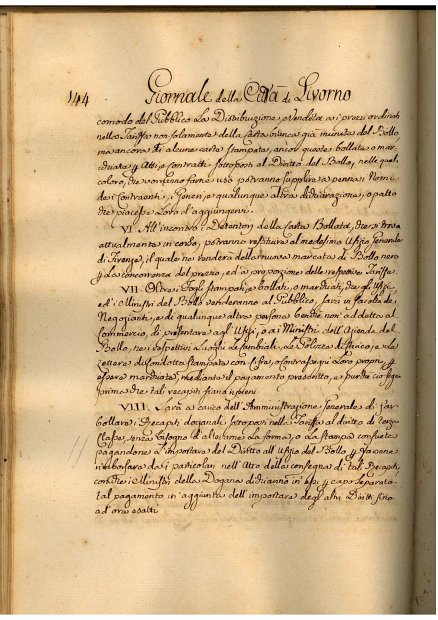 144 Giornale della Città di Livorno
comodo del Pubblico la Distribuzione, e vendita a i prezzi ordinati
nella Tariffa non solamente della Carta bianca già munita del Bollo
ma ancora di alcune carte stampate, ancor queste bollate o mar-
chiate Atti, e Contratti sottoposti al Diritto del Bollo, nelle quali
coloro, che vorranno farne uso potranno supplire a penna i Nomi
de i Contraenti, i Generi, e qualunque altra dichiarazione, o patto
che piacesse loro d'aggiungervi.
VI. All'incontro i Detentori della Carta Bollata, che si trova
attualmente in corso, potranno restituirla al medesimo Ufizio Generale
di Firenze, il quale ne renderà della nuova marcata di Bollo nero
la concorrenza del prezzo, ed a proporzione delle respettive Tariffe.
VII. Oltre i Fogli stampati, e bollati, o marchiati, che gli Ufizi,
ed i Ministri del Bollo venderanno al Pubblico, sarà in facoltà de'
Negozianti, e di qualunque altra persona benché non addetta al
Commercio, di presentare agl'Ufizi, o ai Ministri dell'Azienda del
Bollo, ne i respettivi Luoghi le Cambiali, le Polizze di Carico, e le
Lettere di Condotta stampate con Cifre, o Contrassegni Loro propri,
essere marchiate, mediante il pagamento prescritto, e purché ciò segua
prima che tali recapiti siano ripieni.
VIII. Sarà a carico dell'Amministrazione Generale di far
bollare i Recapiti doganali sottoposti nella Tariffa al diritto di terza
Classe, senza bisogno d'alterarne la forma, o la stampa consueta
pagandone l'importare del Diritto all'Ufizio del Bollo
rimborsare da i particolari nell'Atto della consegna di tali Recapiti,
cosicché i Ministri della Dogana e capo separato
tal pagamento in aggiunta dell'importare degli altri Diritti fino
ad ora esatti